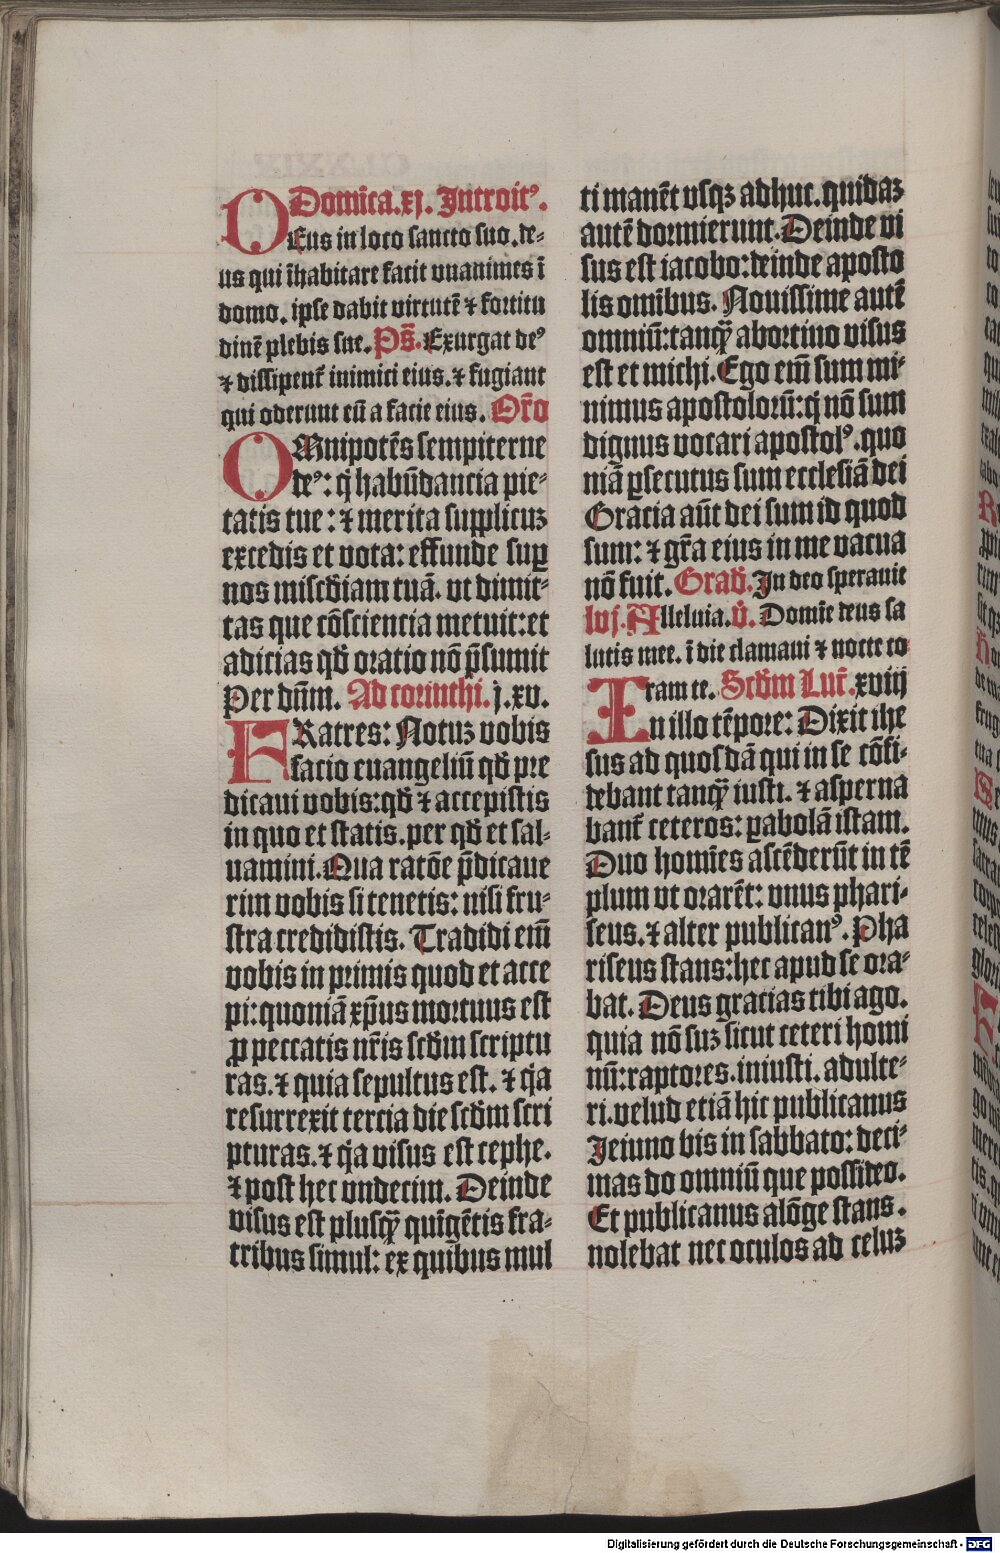 Domīca.xj. Introitꝰ.
DEus in loco sancto suo.de⸗
us qui īhabitare facit vnanimes ī
domo. ipse dabit virtutē ⁊ fortitu
dinē plebis sue. Ps̄. Exurgat deꝰ
⁊ dissipent᷑ inimici eius. ⁊ fugiant
qui oderunt eū a facie eius. Or̄o
OMnipotēs sempiterne
deꝰ: q̇ habūdancia pie⸗
tatis tue: ⁊ merita supplicuꝫ
excedis et vota: effunde suꝑ
nos misc̄diam tuā. vt dimit⸗
tas que cōsciencia metuit: et
adicias qď oratio nō p̄sumit
Per dn̄m. Ad corinthi. j.xv.
FRatres: Notuꝫ vobis
facio euangeliū qď pre
dicaui vobis: qď ⁊ accepistis
in quo et statis. per qď et sal⸗
uamini. Qua ratōe p̄dicaue
rim vobis si tenetis: nisi fru⸗
stra credidistis. Tradidi em̄
vobis in primis quod et acce
pi: quoniā xp̄us mortuus est
ꝓ peccatis nr̄is scďm scriptu
ras. ⁊ quia sepultus est. ⁊ q̇a
resurrexit tercia die scďm scri
pturas. ⁊ q̇a visus est cephe.
⁊ post hec vndecim. Deinde
visus est plusꝙ̄ quīgētis fra⸗
tribus simul: ex quibus mul
ti manēt vsqꝫ adhuc. quidaꝫ
autē dormierunt. Deinde vi
sus est iacobo: deinde aposto
lis omībus. Nouissime autē
omniū: tanꝙ̄ abortiuo visus
est et michi. Ego em̄ sum mi⸗
nimus apostolorū: q̇ nō sum
dignus vocari apostolꝰ. quo
niā ꝑsecutus sum ecclesiā dei
Gracia aūt dei sum id quod
sum: ⁊ gr̄a eius in me vacua
nō fuit. Graď. In deo sperauit
lvj. Alleluia. v̄. Domīe deus sa
lutis mee. ī die clamaui ⁊ nocte co
ram te. Scďm Luc̄. xviij
IN illo tēpore: Dixit ihe
sus ad quosdā qui in se cōfi⸗
debant tanꝙ̄ iusti. ⁊ asperna
bant᷑ ceteros: ꝑabolā istam.
Duo homīes ascēderūt in tē
plum vt orarēt: vnus phari⸗
seus. ⁊ alter publicanꝰ. Pha
riseus stans: hec apud se ora⸗
bat. Deus gracias tibi ago.
quia nō suꝫ sicut ceteri homi
nū: raptores. iniusti. adulte⸗
ri. velud etiā hic publicanus
Ieiuno bis in sabbato: deci⸗
mas do omniū que possideo.
Et publicanus alōge stans.
nolebat nec oculos ad celuꝫ
Digitalisierung gefördert durch die Deutsche Forschungsgemeinschaft - DFG